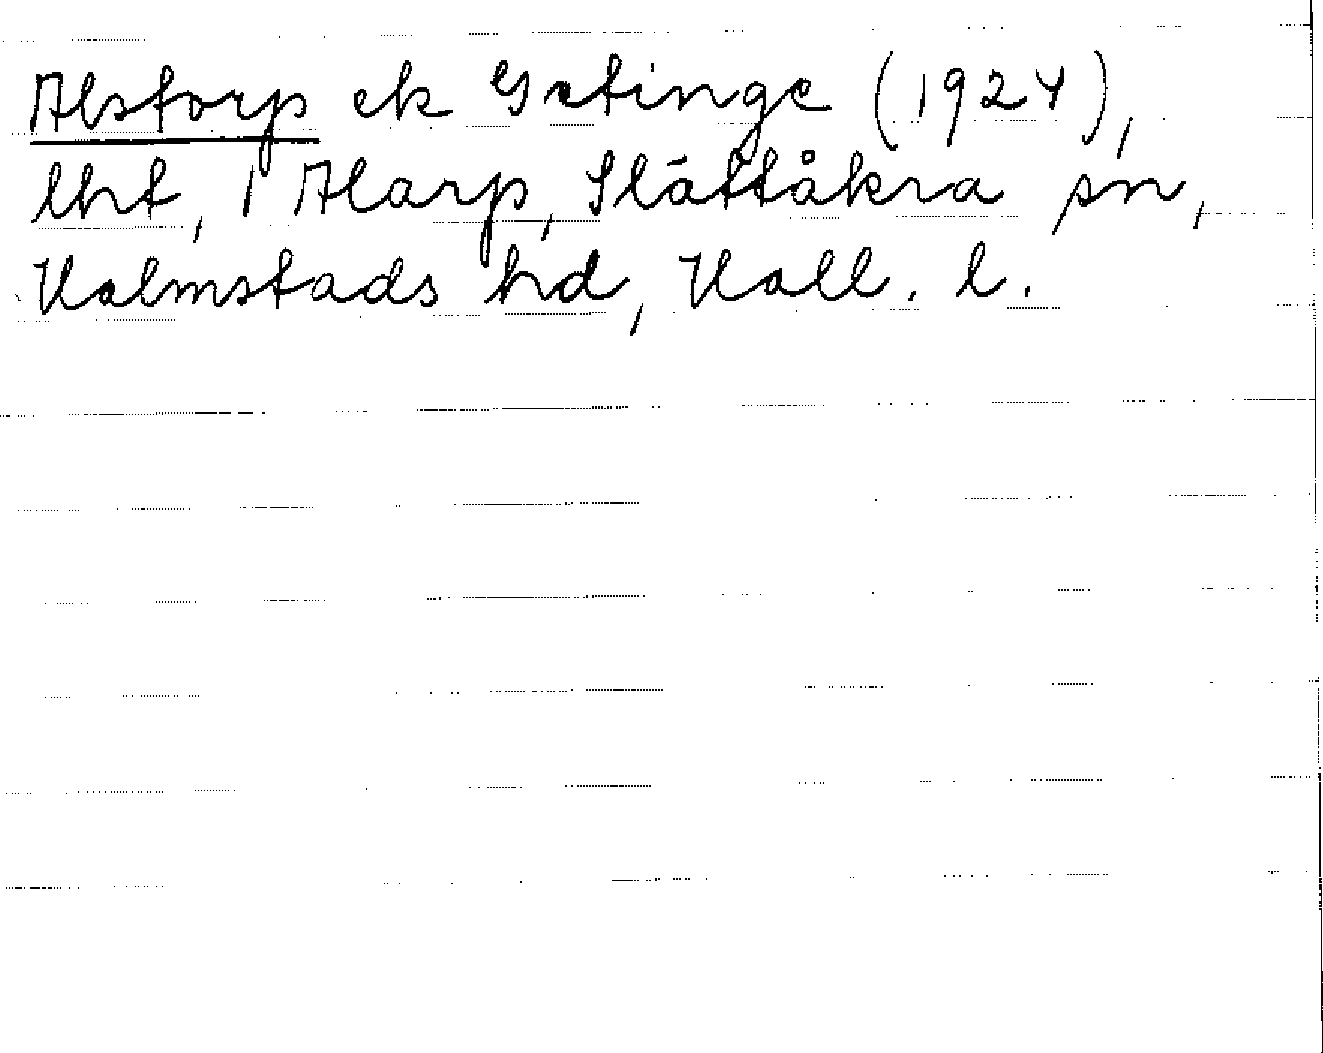 Alstorp ek Getinge (1924),
lht, 1 Alarp, Slättåkra sn,
Halmstads hd, Hall. l.